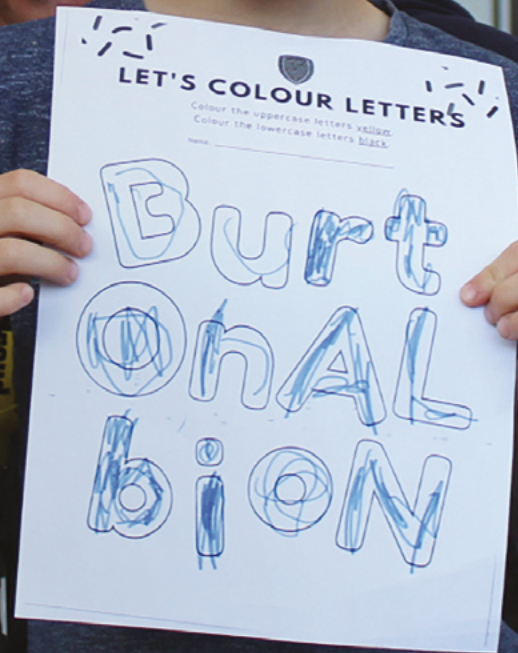 LET'S COLOUR LETTERS
Colour the uppercase letters yellow.
Colour the lowercase letters black.
Name:
Burt
OnAL
bioN